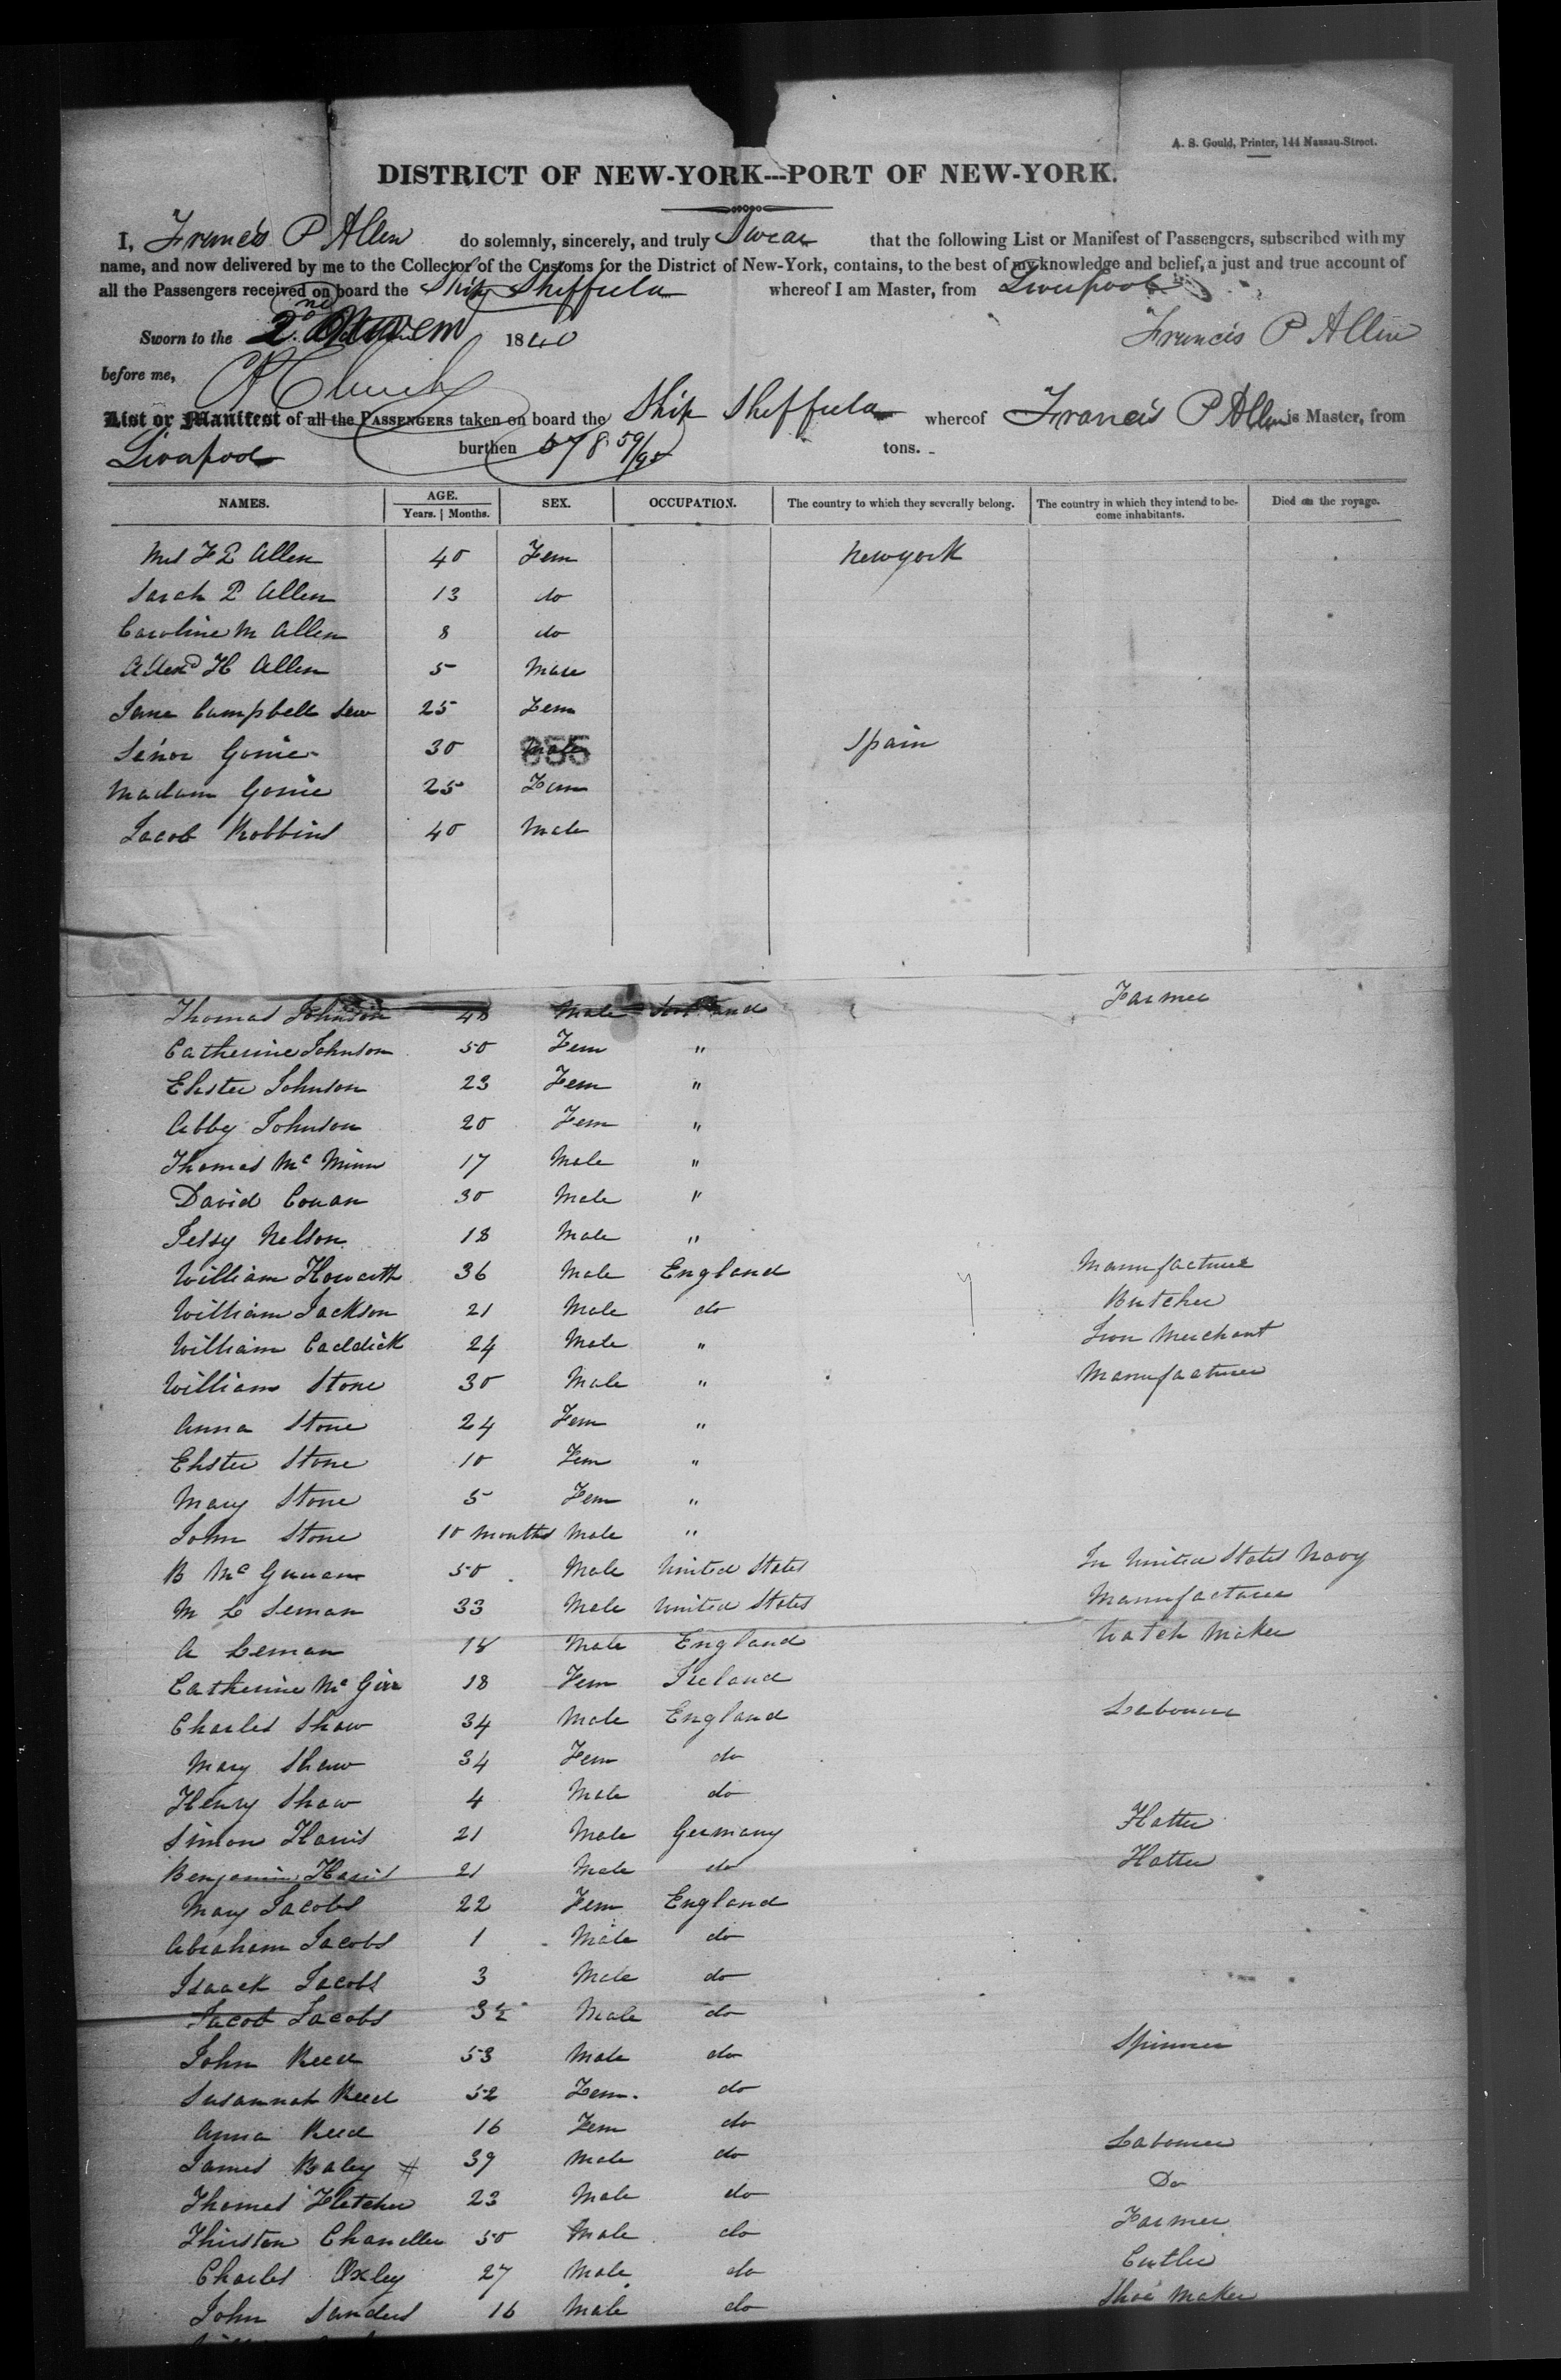 A. S. Gould, Printer, 144 Nassau-Street.
DISTRICT OF NEW-YORK---PORT OF NEW-YORK.
I, Francis P Allen do solemnly, sincerely, and truly Swear that the following List or Manifest of Passengers, subscribed with my
name, and now delivered by me to the Collector of the Customs for the District of New-York, contains, to the best of my knowledge and belief, a just and true account of
all the Passengers received on board the Ship Sheffield whereof I am Master, from Liverpool
Sworn to the 2nd Novem 1840 Francis P Allen
before me,
List or Manifest of all the PASSENGERS taken on board the Ship Sheffield whereof Francis P Allen is Master, from
Liverpool burthen 578 59/95 tons.
NAMES. AGE. SEX. OCCUPATION. The country to which they severally belong. The country in which they intend to be-come inhabitants. Died on the voyage.
Years. | Months.
Mrs F P Allen 40 Fem New york
Sarah P Allen 13 do
Caroline M Allen 8 do
H Allen 5 Male
Jane Campbell 25 Fem
Señor Gonie 30 Male Spain
855
Madam Gonie 25 Fem
Jacob Robbins 40 Male
Thomas Johnson 48 Male Scotland Farmer
Catherine Johnson 50 Fem "
Ehster Johnson 23 Fem "
Abby Johnson 20 Fem "
Thomas Mc Minn 17 Male "
David Cowan 30 Male "
Jessy Nelson 18 Male "
William Howarth 36 Male England Manufacturer
William Jackson 21 Male do Butcher
William Caddick 24 Male " Iron Merchant
William Stone 30 Male " Manufacturer
Anna Stone 24 Fem "
Ehster Stone 10 Fem "
Mary Stone 5 Fem "
John Stone 10 months Male "
B Mc 50 Male United States In United States Navy
M L Leman 33 Male United States Manufacturer
A Leman 18 Male England Watch Maker
Catherine Mc Girr 18 Fem Ireland
Charles Shaw 34 Male England Labourer
Mary Shaw 34 Fem do
Henry Shaw 4 Male do
Simon Harris 21 Male Germany Hatter
Benjamin Harris 21 Male do Hatter
Mary Jacobs 22 Fem England
Abraham Jacobs 1 Male do
Isaack Jacobs 3 Male do
Jacob Jacobs 3½ Male do
John Reed 53 Male do Spinner
Susannah Reed 52 Fem. do
Anna Reed 16 Fem do
James Baley # 39 Male do Labourer
Thomas Fletcher 23 Male do Do
Thirston Chaneller 50 Male do Farmer
Charles Oxley 27 Male do Cutler
John Sanders 16 Male do Shoe Maker